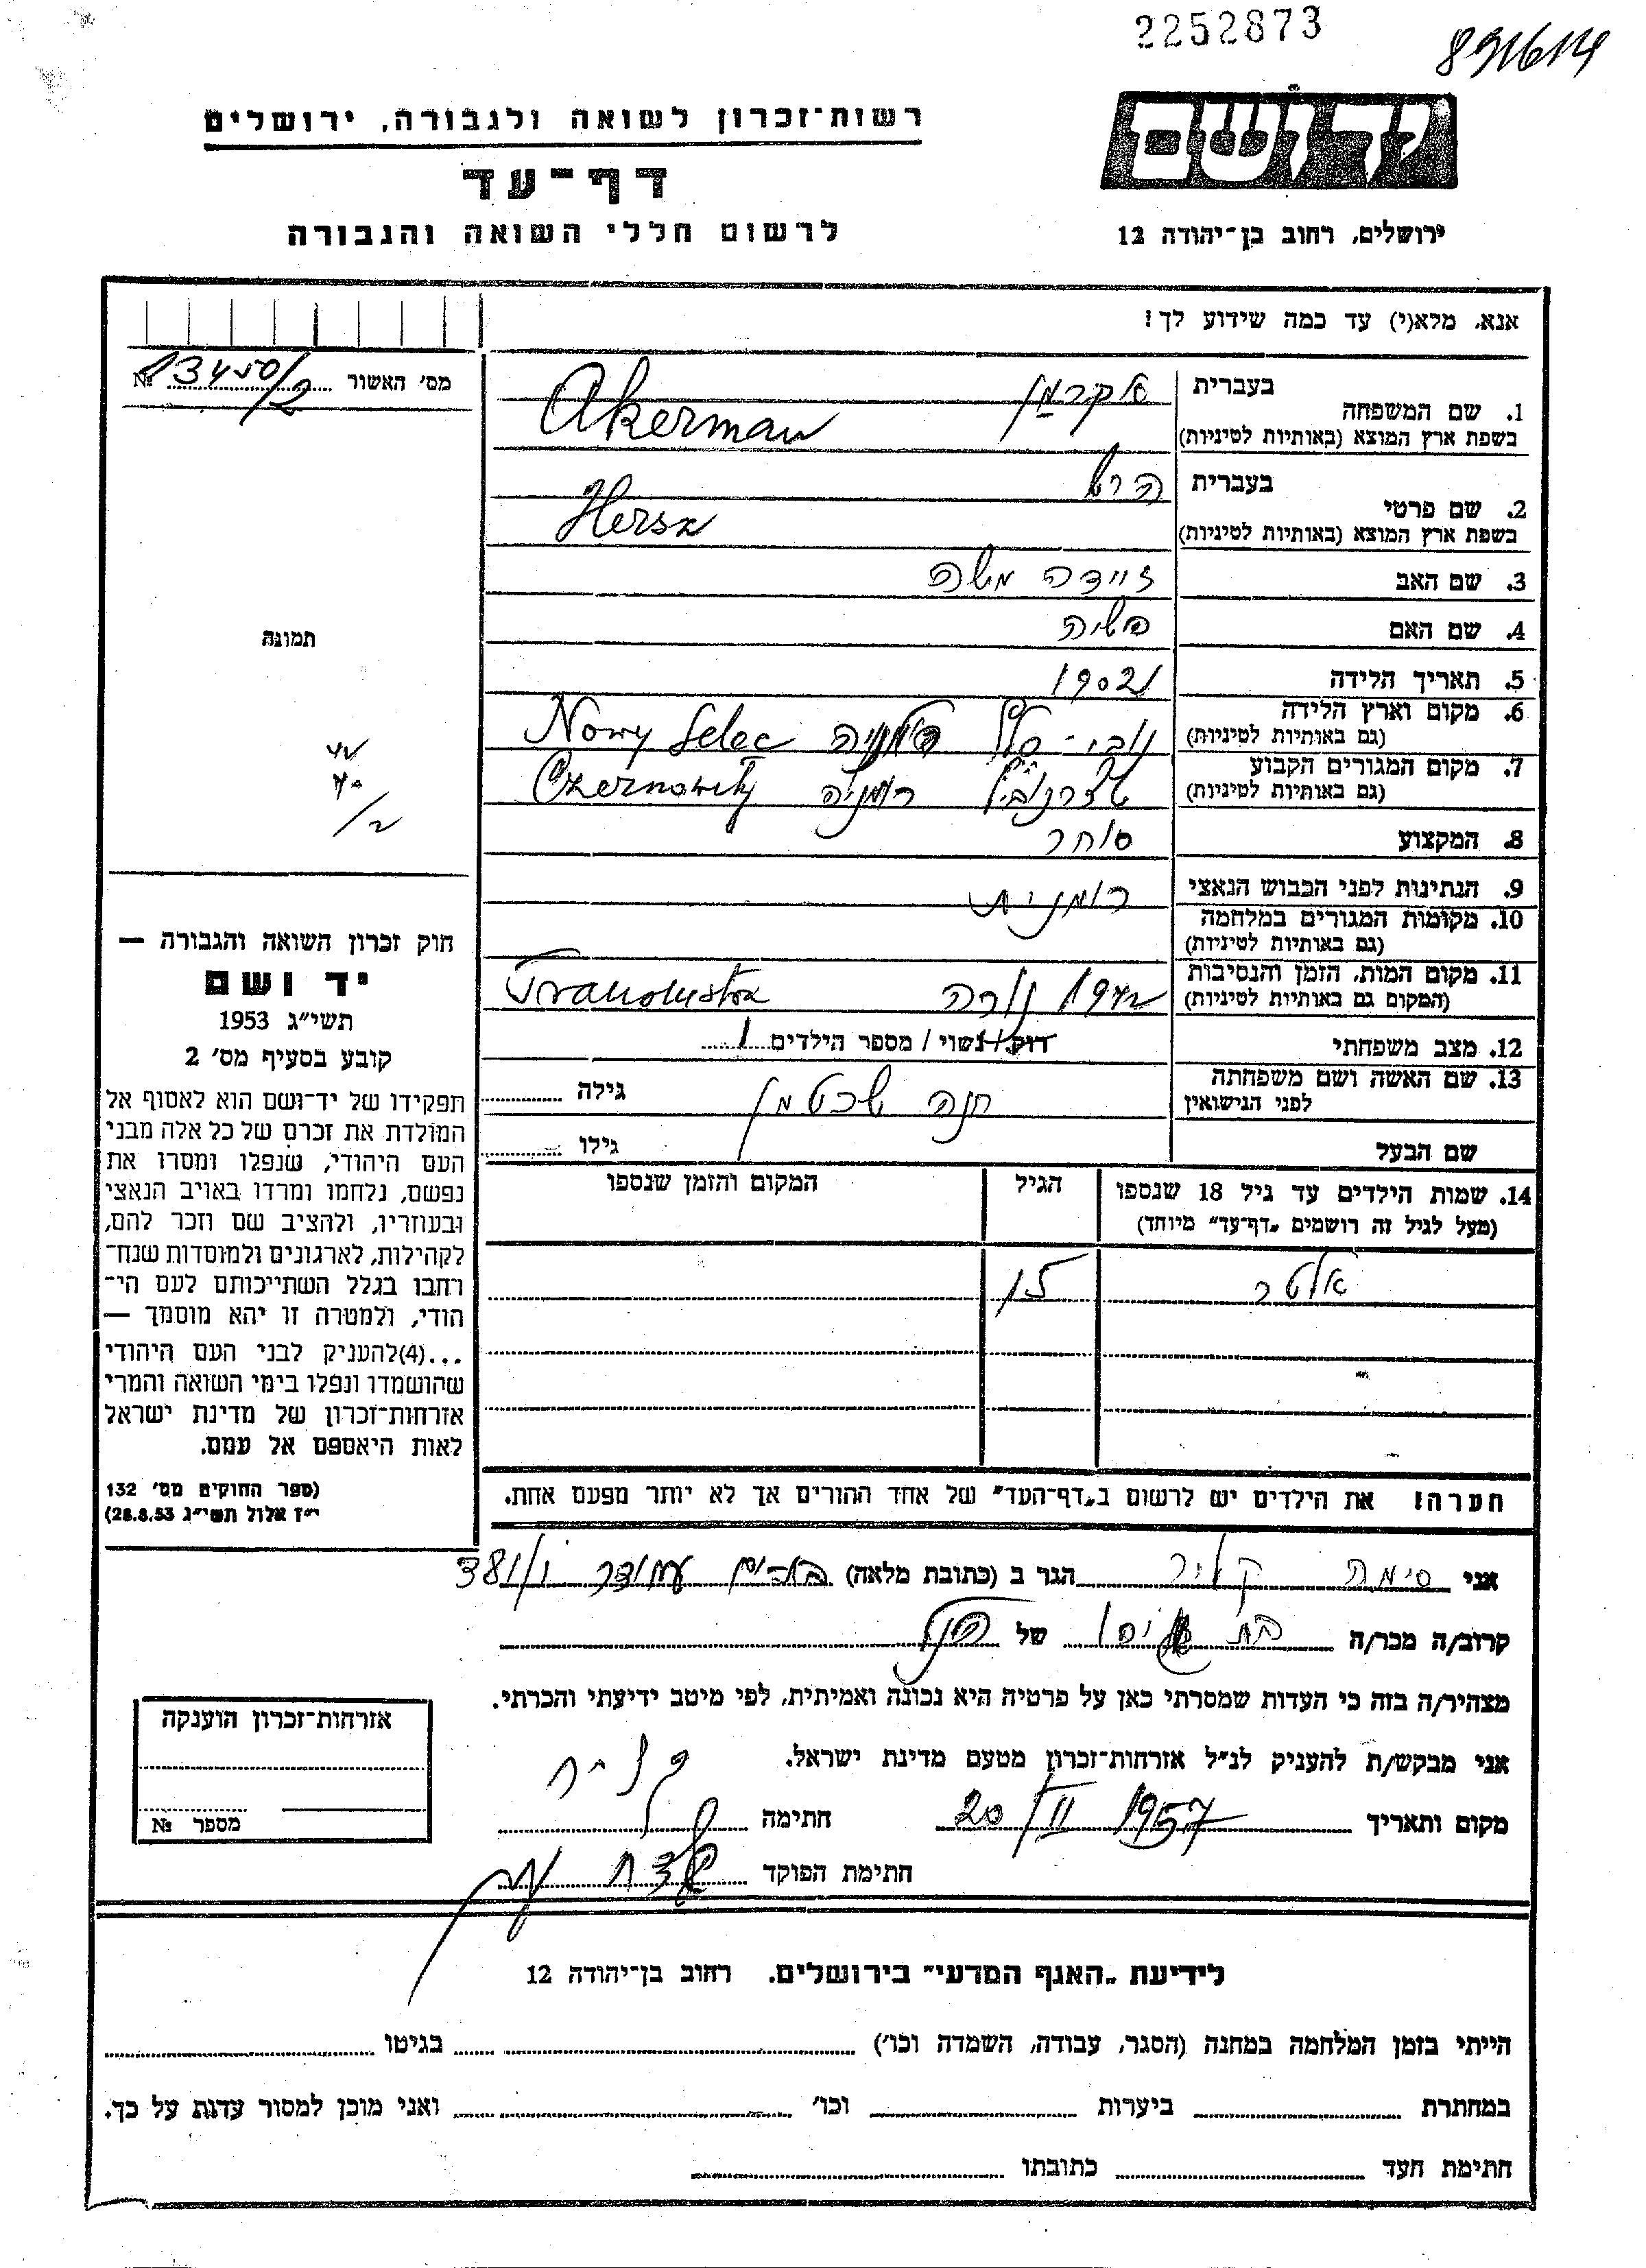 2252873
891614
יד ושם
ירושלים, רחוב בן־יהודה 12
רשות־זכרון לשואה ולגבורה, ירושלים
דף־עד
לרשום חללי השואה והגבורה
אנא, מלא(י) עד כמה שידוע לך!
מס׳ האשור № 13450/2
בעברית אקרמן
1. שם המשפחה
בשפת ארץ המוצא (באותיות לטיניות) Akerman
בעברית הרש
2. שם פרטי
בשפת ארץ המוצא (באותיות לטיניות) Hersz
3. שם האב זיידה משה
4. שם האם
5. תאריך הלידה 1902
6. מקום וארץ הלידה
(גם באותיות לטיניות) נובי־סליץ רומניה Nowy Selec
7. מקום המגורים הקבוע
(גם באותיות לטיניות) רומניה Czernowitz
8. המקצוע סוחר
9. הנתינות לפני הכבוש הנאצי רומנית
10. מקומות המגורים במלחמה
(גם באותיות לטיניות)
11. מקום המות, הזמן והנסיבות
(המקום גם באותיות לטיניות) 1942 נורה Tranolustra
12. מצב משפחתי רווק/נשוי / מספר הילדים 1
13. שם האשה ושם משפחתה
לפני הנישואין חנה שכטמן גילה
שם הבעל גילו
14. שמות הילדים עד גיל 18 שנספו הגיל המקום והזמן שנספו
(מעל לגיל זה רושמים „דף־עד״ מיוחד)
אלטר 15
הערה! את הילדים יש לרשום ב„דף־העד״ של אחד ההורים אך לא יותר מפעם אחת.
תמונה
חוק זכרון השואה והגבורה —
יד ושם
תשי״ג 1953
קובע בסעיף מס׳ 2
תפקידו של יד־ושם הוא לאסוף אל
המולדת את זכרם של כל אלה מבני
העם היהודי, שנפלו ומסרו את
נפשם, נלחמו ומרדו באויב הנאצי
ובעוזריו, ולהציב שם וזכר להם,
לקהילות, לארגונים ולמוסדות שנח־
רחבו בגלל השתייכותם לעם הי־
הודי, ולמטרה זו יהא מוסמך —
...(4)להעניק לבני העם היהודי
שהושמדו ונפלו בימי השואה והמרי
אזרחות־זכרון של מדינת ישראל
לאות היאספם אל עמם.
(ספר החוקים מס׳ 132
י״ז אלול תשי״ג 28.8.53)
אני סימה קליר הגר ב (כתובת מלאה)
קרוב/ה מכר/ה של הנ״ל
מצהיר/ה בזה כי העדות שמסרתי כאן על פרטיה היא נכונה ואמיתית, לפי מיטב ידיעתי והכרתי.
אני מבקש/ת להעניק לנ״ל אזרחות־זכרון מטעם מדינת ישראל.
מקום ותאריך 20/II 1957 חתימה
חתימת הפוקד
אזרחות־זכרון הוענקה
מספר №
לידיעת „האגף המדעי״ בירושלים. רחוב בן־יהודה 12
הייתי בזמן המלחמה במחנה (הסגר, עבודה, השמדה וכו׳) בגיטו
במחתרת ביערות וכו׳ ואני מוכן למסור עדות על כך.
חתימת העד כתובתו